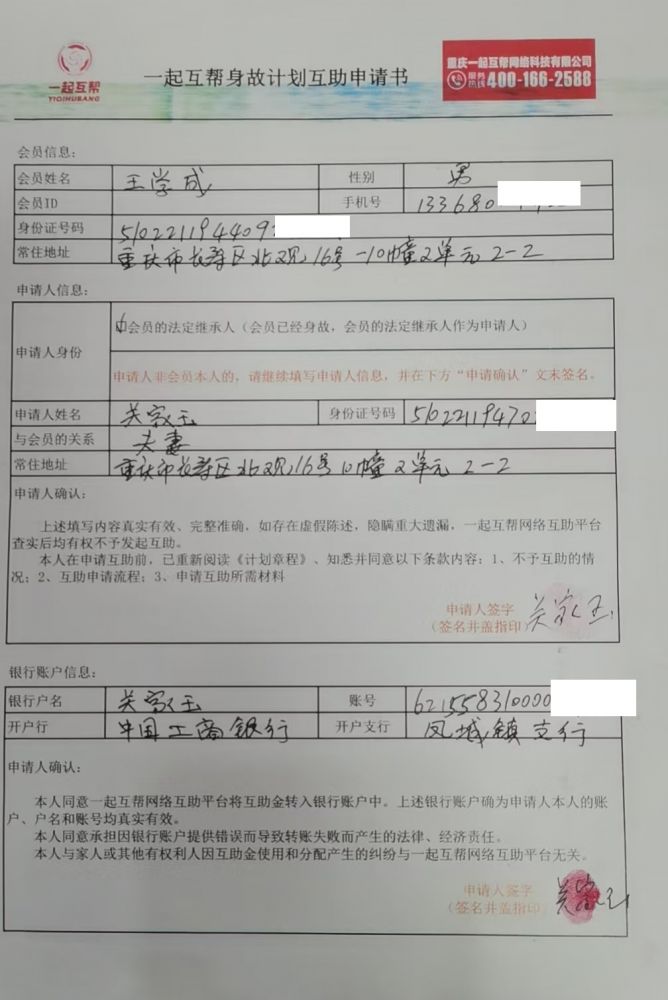 一起互帮
YIQIHUBANG
一起互帮身故计划互助申请书
重庆一起互帮网络科技有限公司
服务热线 400-166-2588
会员信息：
会员姓名 王学成 性别 男
会员ID 手机号 133680
身份证号码 510221194409
常住地址 重庆市长寿区北观16号-10幢2单元2-2
申请人信息：
申请人身份
会员的法定继承人（会员已经身故，会员的法定继承人作为申请人）
申请人非会员本人的，请继续填写申请人信息，并在下方“申请确认”文末签名。
申请人姓名 关家玉 身份证号码 51022119470
与会员的关系 夫妻
常住地址 重庆市长寿区北观16号10幢2单元2-2
申请人确认：
上述填写内容真实有效、完整准确，如存在虚假陈述，隐瞒重大遗漏，一起互帮网络互助平台
查实后均有权不予发起互助。
本人在申请互助前，已重新阅读《计划章程》、知悉并同意以下条款内容：1、不予互助的情
况；2、互助申请流程；3、申请互助所需材料
申请人签字
（签名并盖指印） 关家玉
银行账户信息：
银行户名 关家玉 账号 621558310000
开户行 中国工商银行 开户支行 凤城镇支行
申请人确认：
本人同意一起互帮网络互助平台将互助金转入银行账户中。上述银行账户确为申请人本人的账
户、户名和账号均真实有效。
本人同意承担因银行账户提供错误而导致转账失败而产生的法律、经济责任。
本人与家人或其他有权利人因互助金使用和分配产生的纠纷与一起互帮网络互助平台无关。
申请人签字
（签名并盖指印） 关家玉